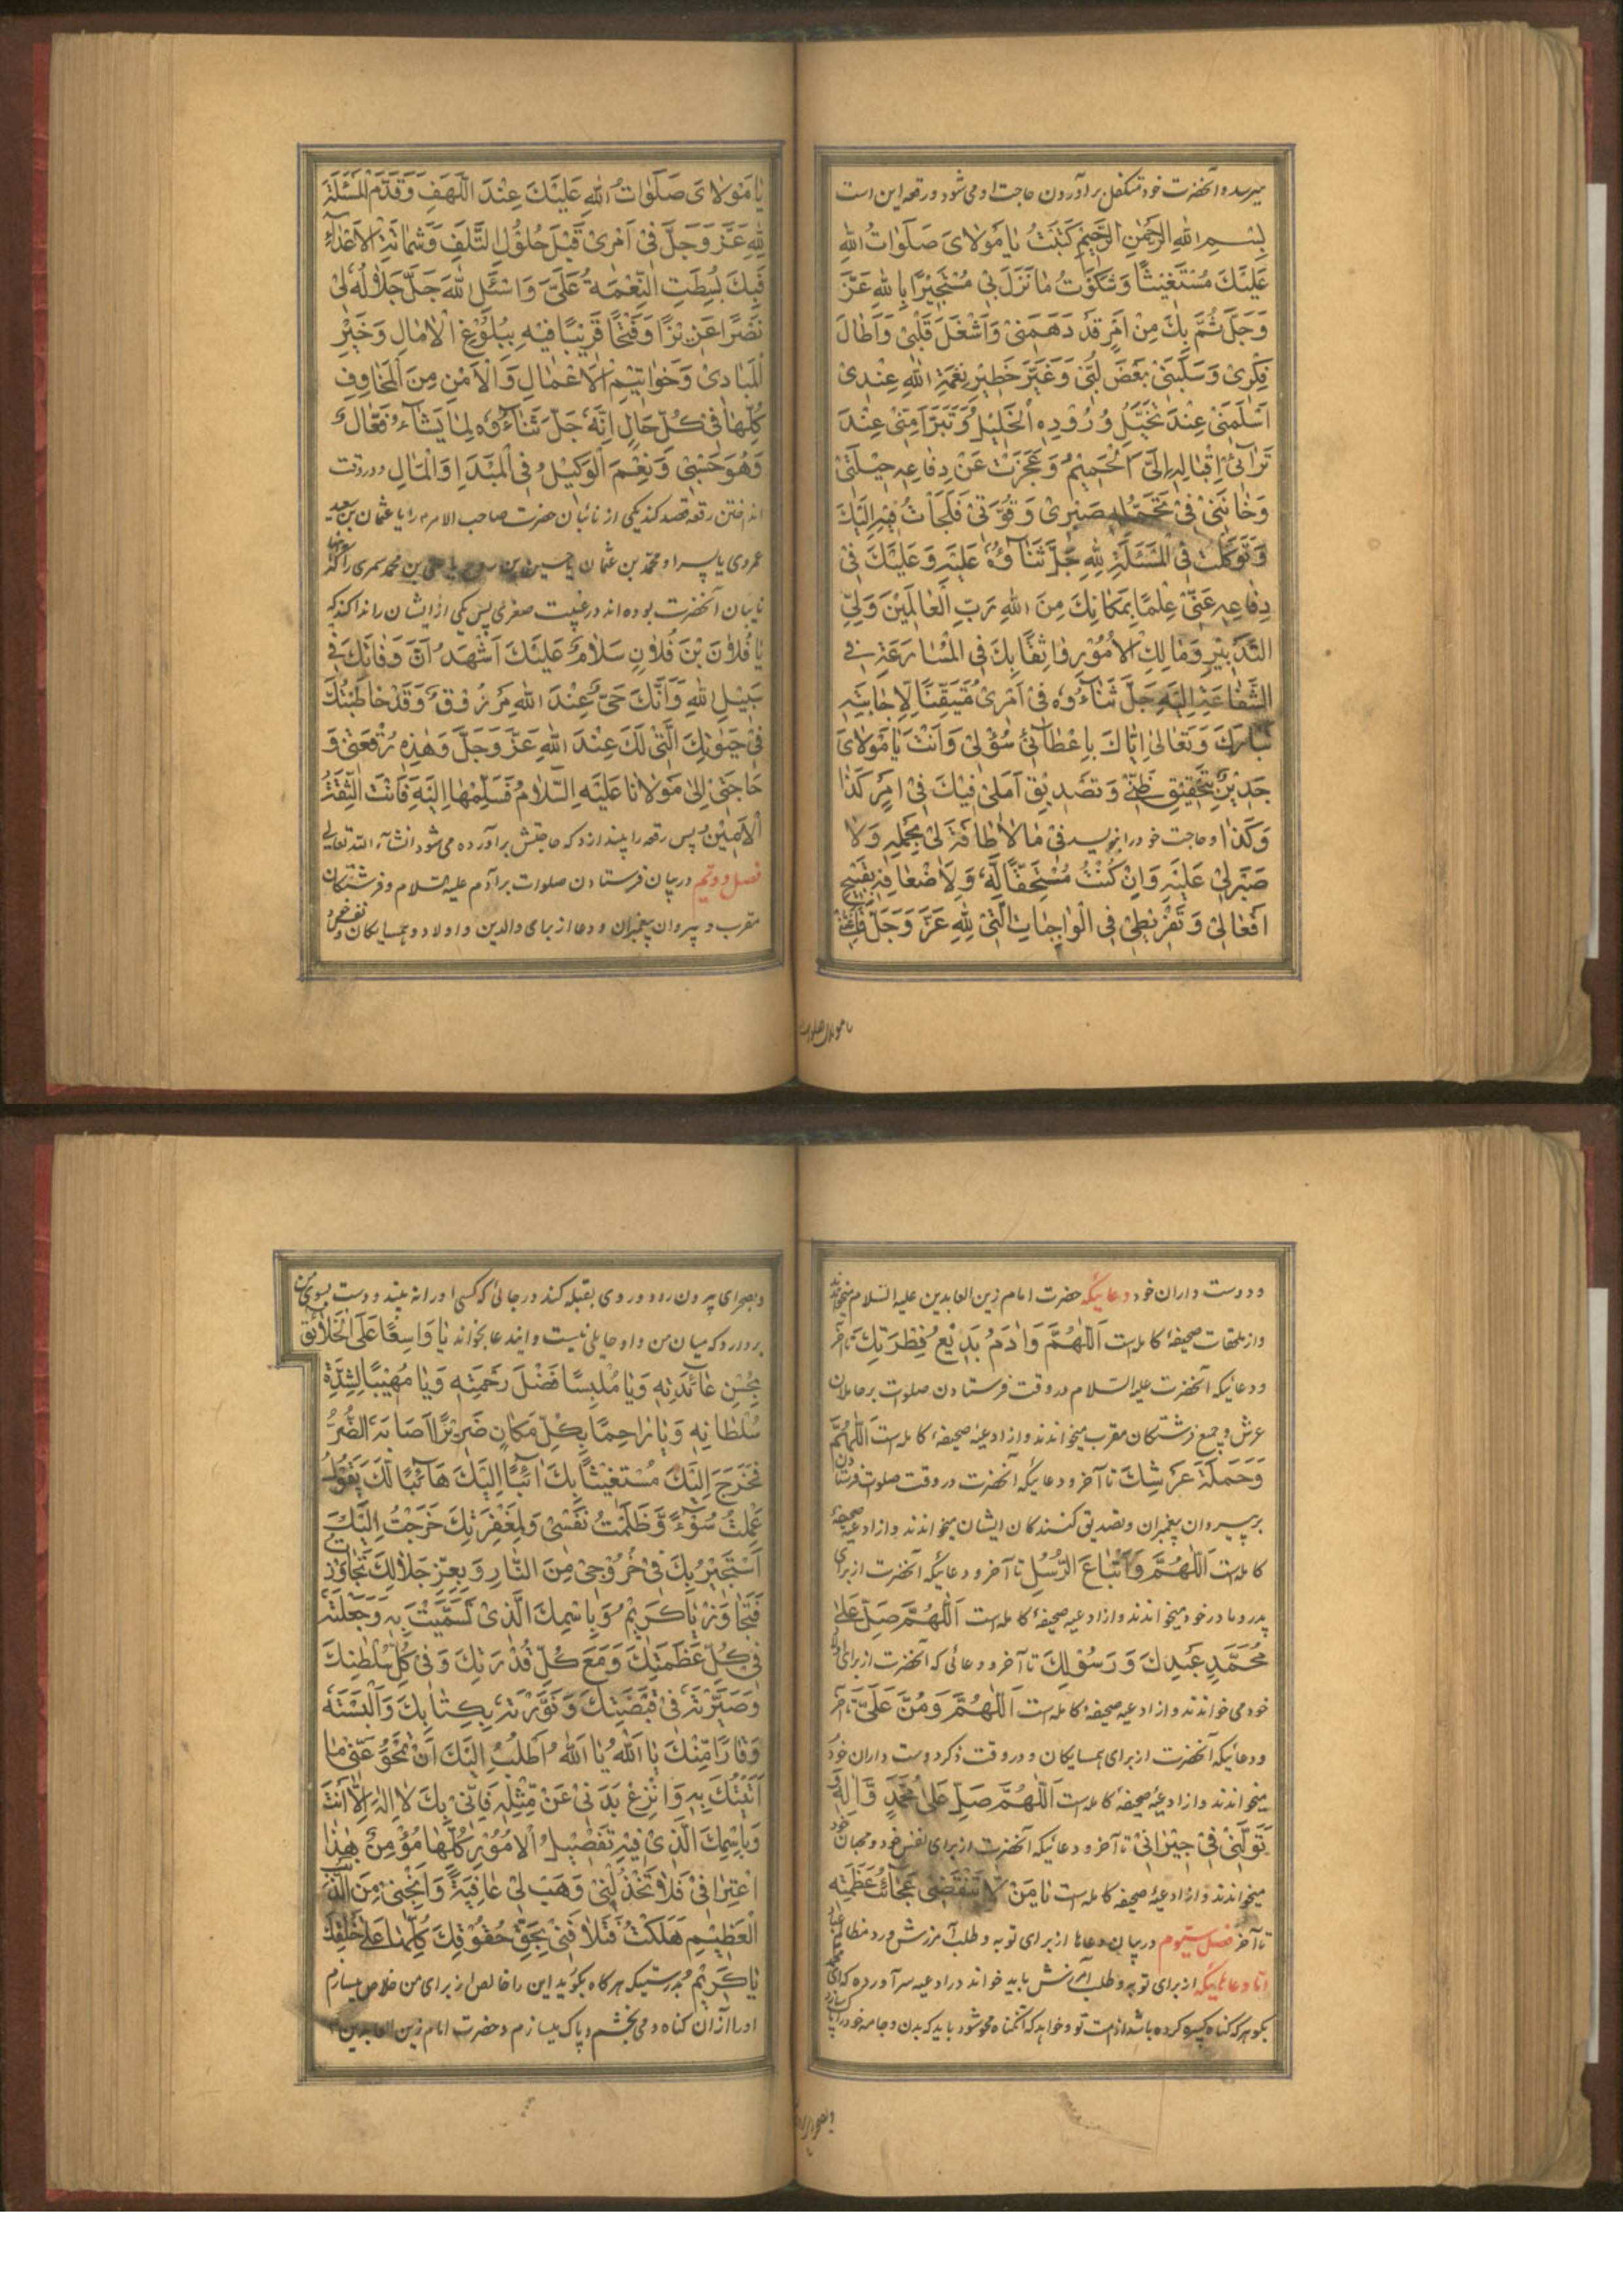 میرسد و آنحضرت خود متکفل برآوردن حاجت او می شود و رقعه این است
بِسْمِ اللهِ الرَّحْمٰنِ الرَّحِيمِ كَتَبْتُ يٰا مَوْلاٰىَ صَلَوٰاتُ اللهِ
عَلَيْكَ مُسْتَغيٖثًا وَشَكَوْتُ مٰا نَزَلَ بيٖ مُسْتَجيٖرًا بِاللهِ عَزَّ
وَجَلَّ ثُمَّ بِكَ مِنْ اَمْرٍ قَدْ دَهَمَنيٖ وَاَشْغَلَ قَلْبيٖ وَاَطٰالَ
فِكْريٖ وَسَلَّبَنيٖ بَعْضَ لُبّيٖ وَغَيَّرَ خَطيٖرَ نِعْمَةِ اللهِ عِنْديٖ
اَسْلَمَنيٖ عِنْدَ تَخَيُّلِ وُرُوْدِهِ الْخَليٖلُ وَتَبَرَّاَ مِنّيٖ عِنْدَ
تَرٰآئيٖ اِقْبٰالِهِ اِلَيَّ الْحَميٖمُ وَعَجَزَتْ عَنْ دِفٰاعِهِ حيٖلَتيٖ
وَخٰانَنيٖ فيٖ تَحَمُّلِهِ صَبْريٖ وَقُوَّتيٖ فَلَجَاْتُ فيٖهِ اِلَيْكَ
وَتَوَكَّلْتُ فِي الْمَسْئَلَةِ لِلّٰهِ جَلَّ ثَنٰآؤُهُ عَلَيْهِ وَعَلَيْكَ فيٖ
دِفٰاعِهِ عَنّيٖ عِلْمًا بِمَكٰانِكَ مِنَ اللهِ رَبِّ الْعٰالَميٖنَ وَلِيِّ
التَّدْبيٖرِ وَمٰالِكِ الْاُمُوْرِ وٰاثِقًا بِكَ فِي الْمُسٰارَعَةِ فيٖ
الشَّفٰاعَةِ اِلَيْهِ جَلَّ ثَنٰاءُوهُ فيٖ اَمْريٖ مُتَيَقِّنًا لِاِجٰابَتِهِ
تَبٰارَكَ وَتَعٰالىٰ اِيّٰاكَ بِاِعْطٰآئيٖ سُؤْليٖ وَاَنْتَ يٰا مَوْلاٰىَ
جَديٖرٌ بِتَحْقيٖقِ ظَنّيٖ وَتَصْديٖقِ اَمَليٖ فيٖكَ فيٖ اَمْرِ كَذٰا
وَكَذٰا و حاجت خود را بنویسد فيٖ مٰا لاٰ طٰاقَةَ ليٖ بِحَمْلِهِ وَلاٰ
صَبْرَ ليٖ عَلَيْهِ وَاِنْ كُنْتُ مُسْتَحِقًّا لَهُ وَلِاَضْعٰافِهِ بِقَبيٖحِ
اَفْعٰاليٖ وَتَفْريٖطيٖ فِي الْوٰاجِبٰاتِ الَّتيٖ لِلّٰهِ عَزَّ وَجَلَّ فَاَغِثْنيٖ
یا مولای صلوات
يٰا مَوْلاٰىَ صَلَوٰاتُ اللهِ عَلَيْكَ عِنْدَ اللَّهَفِ وَقَدِّمِ الْمَسْئَلَةَ
لِلّٰهِ عَزَّ وَجَلَّ فيٖ اَمْريٖ قَبْلَ حُلُوْلِ التَّلَفِ وَشَمٰاتَةِ الْاَعْدٰآءِ
فَبِكَ بُسِطَتِ النِّعْمَةُ عَلَيَّ وَاسْئَلِ اللهَ جَلَّ جَلاٰلُهُ ليٖ
نَصْرًا عَزيٖزًا وَفَتْحًا قَريٖبًا فيٖهِ بِبُلُوْغِ الْاٰمٰالِ وَخَيْرِ
الْمَبٰاديٖ وَخَوٰاتيٖمِ الْاَعْمٰالِ وَالْاَمْنِ مِنَ الْمَخٰاوِفِ
كُلِّهٰا فيٖ كُلِّ حٰالٍ اِنَّهُ جَلَّ ثَنٰاءُوهُ لِمٰا يَشٰآءُ فَعّٰالٌ
وَهُوَ حَسْبيٖ وَنِعْمَ الْوَكيٖلُ فِي الْمَبْدَاِ وَالْمَاٰلِ و در وقت
انداختن رقعه قصد کند یکی از نائبان حضرت صاحب الامر را یا عثمان بن سعید
عمروی یا پسر او محمد بن عثمان یا حسین بن روح یا علی بن محمد سمری را که
نایبان آنحضرت بوده اند در غیبت صغری پس یکی از ایشان را ندا کند که
يٰا فُلاٰنَ بْنَ فُلاٰنٍ سَلاٰمٌ عَلَيْكَ اَشْهَدُ اَنَّ وَفٰاتَكَ فيٖ
سَبيٖلِ اللهِ وَاَنَّكَ حَيٌّ عِنْدَ اللهِ مَرْزُوْقٌ وَقَدْ خٰاطَبْتُكَ
فيٖ حَيٰوتِكَ الَّتيٖ لَكَ عِنْدَ اللهِ عَزَّ وَجَلَّ وَهٰذِهِ رُقْعَتيٖ وَ
حٰاجَتيٖ اِلىٰ مَوْلاٰنٰا عَلَيْهِ السَّلاٰمُ فَسَلِّمْهٰا اِلَيْهِ فَاَنْتَ الثِّقَةُ
الْاَميٖنُ پس رقعه را بیندازد که حاجتش برآورده می شود انشآء الله تعالی
فصل دویم در بیان فرستادن صلوات بر آدم علیه السلام و فرشتکان
مقرب و پیروان پیغمبران و دعا از برای والدین و اولاد و همسایکان و نفس خود
و دوست داران خود دعائیکه حضرت امام زین العابدین علیه السلام میخوانده
و از ملحقات صحیفهٔ کامله است اَللّٰهُمَّ وَاٰدَمُ بَديٖعُ فِطْرَتِكَ تا آخر
و دعائیکه آنحضرت علیه السلام در وقت فرستادن صلوات بر حاملان
عرش و جمیع فرشتکان مقرب میخواندند و از ادعیهٔ صحیفهٔ کامله است اَللّٰهُمَّ
وَحَمَلَةُ عَرْشِكَ تا آخر و دعائیکه آنحضرت در وقت صلوات فرستادن
بر پیروان پیغمبران و تصدیق کنندکان ایشان میخواندند و از ادعیهٔ صحیفهٔ
کامله است اَللّٰهُمَّ وَاَتْبٰاعُ الرُّسُلِ تا آخر و دعائیکه آنحضرت از برای
پدر و مادر خود میخواندند و از ادعیه صحیفهٔ کامله است اَللّٰهُمَّ صَلِّ عَلىٰ
مُحَمَّدٍ عَبْدِكَ وَرَسُوْلِكَ تا آخر و دعائی که آنحضرت از برای اولاد
خود می خواندند و از ادعیه صحیفهٔ کامله است اَللّٰهُمَّ وَمُنَّ عَلَيَّ تا آخر
و دعائیکه آنحضرت از برای همسایکان و در وقت ذکر دوست داران خود
میخواندند و از ادعیهٔ صحیفهٔ کامله است اَللّٰهُمَّ صَلِّ عَلىٰ مُحَمَّدٍ وَّاٰلِهِ وَ
تَوَلَّنيٖ فيٖ جيٖرٰانيٖ تا آخر و دعائیکه آنحضرت از برای نفس خود و محبان خود
میخواندند و از ادعیهٔ صحیفه کامله است يٰا مَنْ لاٰ تَنْقَضيٖ عَجٰآئِبُ عَظَمَتِهِ
تا آخر فصل سیوم در بیان دعاها از برای توبه و طلب آمرزش و رد مظالم عباد
امّا دعاهائیکه از برای توبه و طلب آمرزش باید خواند در ادعیه سر آورده که ای محمد
بکو هر که کناه کبیره کرده باشد از امت تو و خواهد که آنکناه محو شود باید که بدن و جامه خود را پاک سازد
و بصحرای
و بصحرای بیرون رود و روی بقبله کند در جائی که کسی او را نه بیند و دست بسوی من
بردارد که میان من و او حایلی نیست و ایندعا بخواند يٰا وٰاسِعًا عَلَى الْخَلاٰئِقِ
بِحُسْنِ عٰآئِدَتِهِ وَيٰا مُلْبِسًا فَضْلَ رَحْمَتِهِ وَيٰا مُهيٖبًا لِشِدَّةِ
سُلْطٰانِهِ وَيٰا رٰاحِمًا بِكُلِّ مَكٰانٍ ضَريٖرًا اَصٰابَهُ الضُّرُّ
فَخَرَجَ اِلَيْكَ مُسْتَغيٖثًا بِكَ اٰئِبًا اِلَيْكَ هٰآئِبًا لَكَ يَقُوْلُ
عَمِلْتُ سُوْٓءً وَّظَلَمْتُ نَفْسيٖ وَلِمَغْفِرَتِكَ خَرَجْتُ اِلَيْكَ
اَسْتَجيٖرُ بِكَ فيٖ خُرُوْجيٖ مِنَ النّٰارِ وَبِعِزِّ جَلاٰلِكَ تَجٰاوَزْتُ
فَتَجٰاوَزْ يٰا كَريٖمُ وَبِاسْمِكَ الَّذيٖ تَسَمَّيْتَ بِهِ وَجَعَلْتَهُ
فيٖ كُلِّ عَظَمَتِكَ وَمَعَ كُلِّ قُدْرَتِكَ وَفيٖ كُلِّ سُلْطٰنِكَ
وَصَيَّرْتَهُ فيٖ قَبْضَتِكَ وَنَوَّرْتَهُ بِكِتٰابِكَ وَاَلْبَسْتَهُ
وَقٰارًا مِّنْكَ يٰا اَللهُ يٰا اَللهُ اَطْلُبُ اِلَيْكَ اَنْ تَمْحُوَ عَنّيٖ مٰا
اَتَيْتُكَ بِهِ وَانْزِعْ بَدَنيٖ عَنْ مِّثْلِهِ فَاِنّيٖ بِكَ لاٰ اِلٰهَ اِلّٰا اَنْتَ
وَبِاسْمِكَ الَّذيٖ فيٖهِ تَفْصيٖلُ الْاُمُوْرِ كُلِّهٰا مُؤْمِنٌ هٰذٰا
اعْتِرٰافيٖ فَلاٰ تَخْذُلْنيٖ وَهَبْ ليٖ عٰافِيَةً وَاَنْجِنيٖ مِنَ الذَّنْبِ
الْعَظيٖمِ هَلَكْتُ فَتَلاٰفَنيٖ بِحَقِّ حُقُوْقِكَ كُلِّهٰا عَلىٰ خَلْقِكَ
يٰا كَريٖمُ بدرستیکه هر کاه بکوئید این را خالص از برای من خلاص میسازم
او را از آن کناه و می بخشم و پاک میسازم و حضرت امام زین العابدین